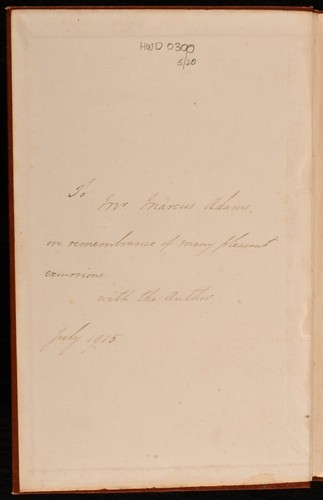 HWD 0300
5/20
To
Mr. Marcus Adams,
in remembrance of many pleasant
excursions
with the Author
July 1915